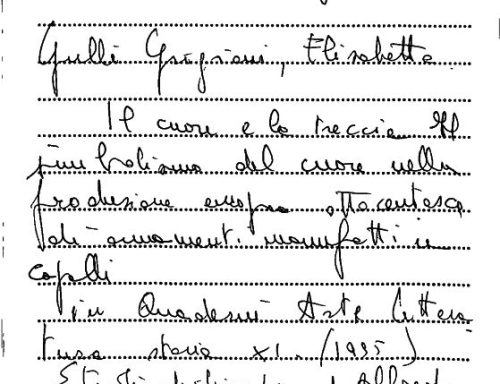 Gulli Grigioni, Elisabetta
Il cuore e la treccia Il
simbolismo del cuore nella
produzione europea ottocentesca
di ornamenti manufatti in
capelli
in Quaderni Arte Lettera
tura storia XI. (1995)